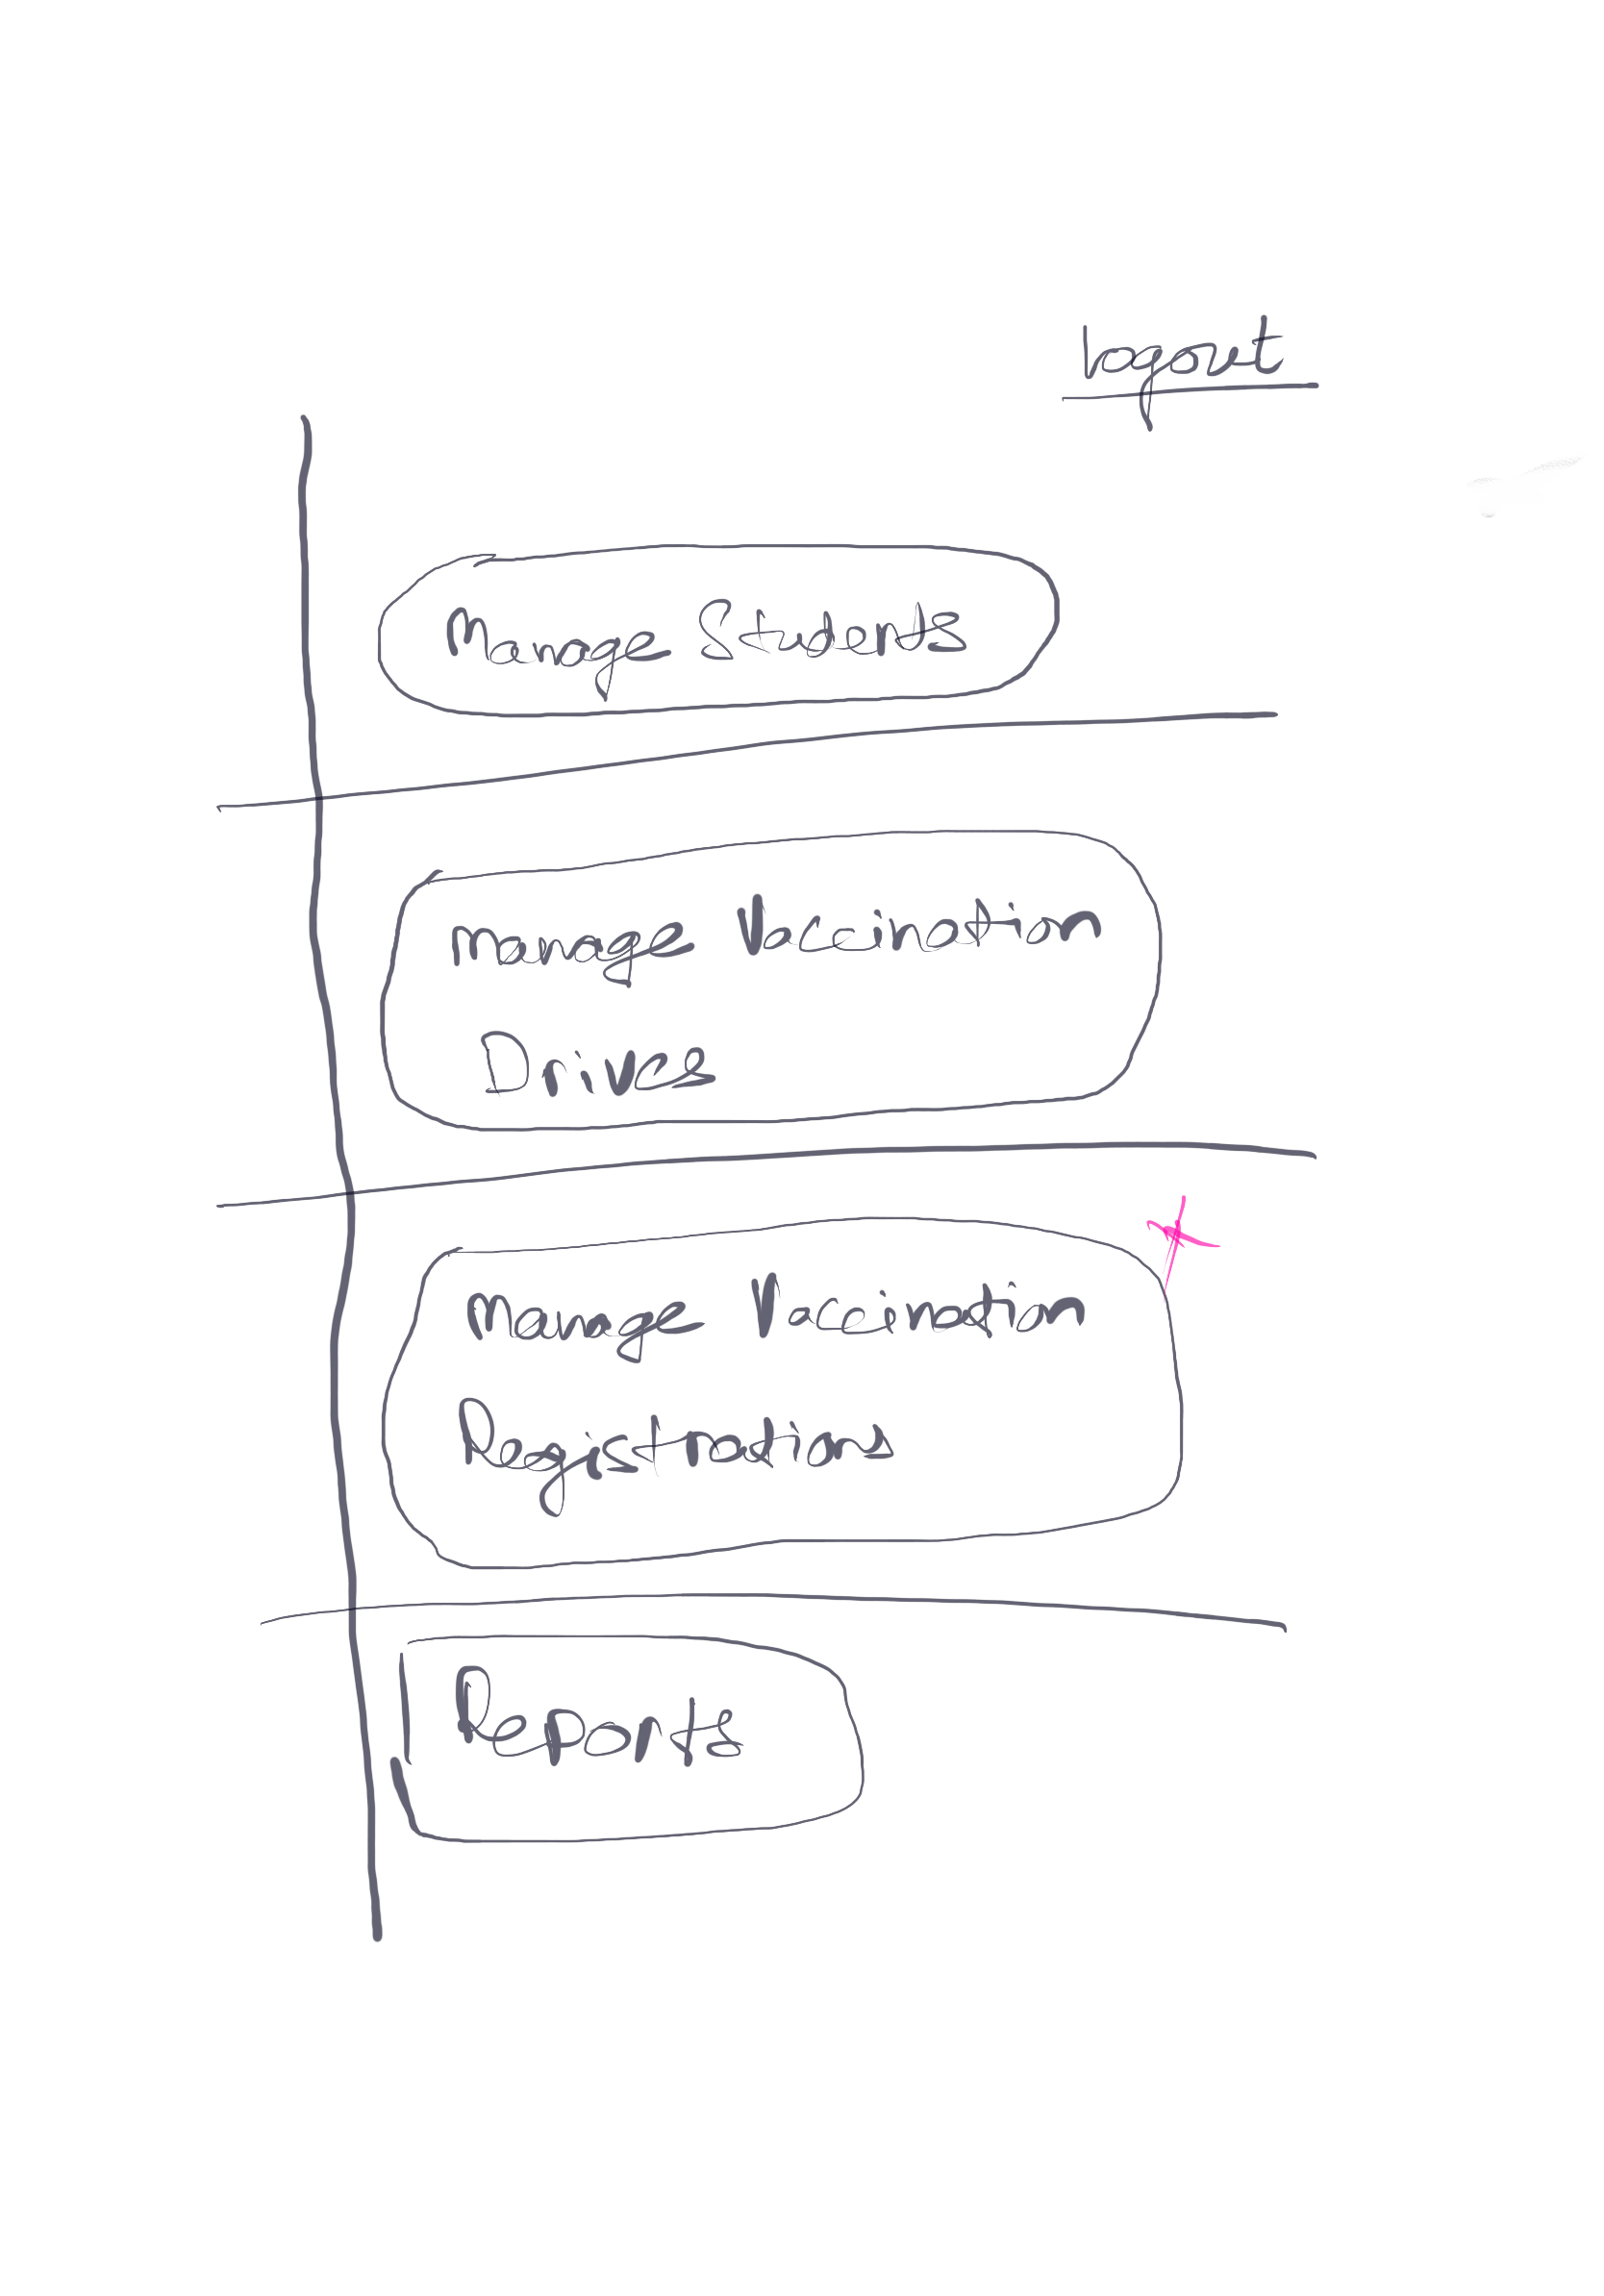 logout
Manage Students
manage Vaccination
Drives
Manage Vaccination
Registrations
Reports